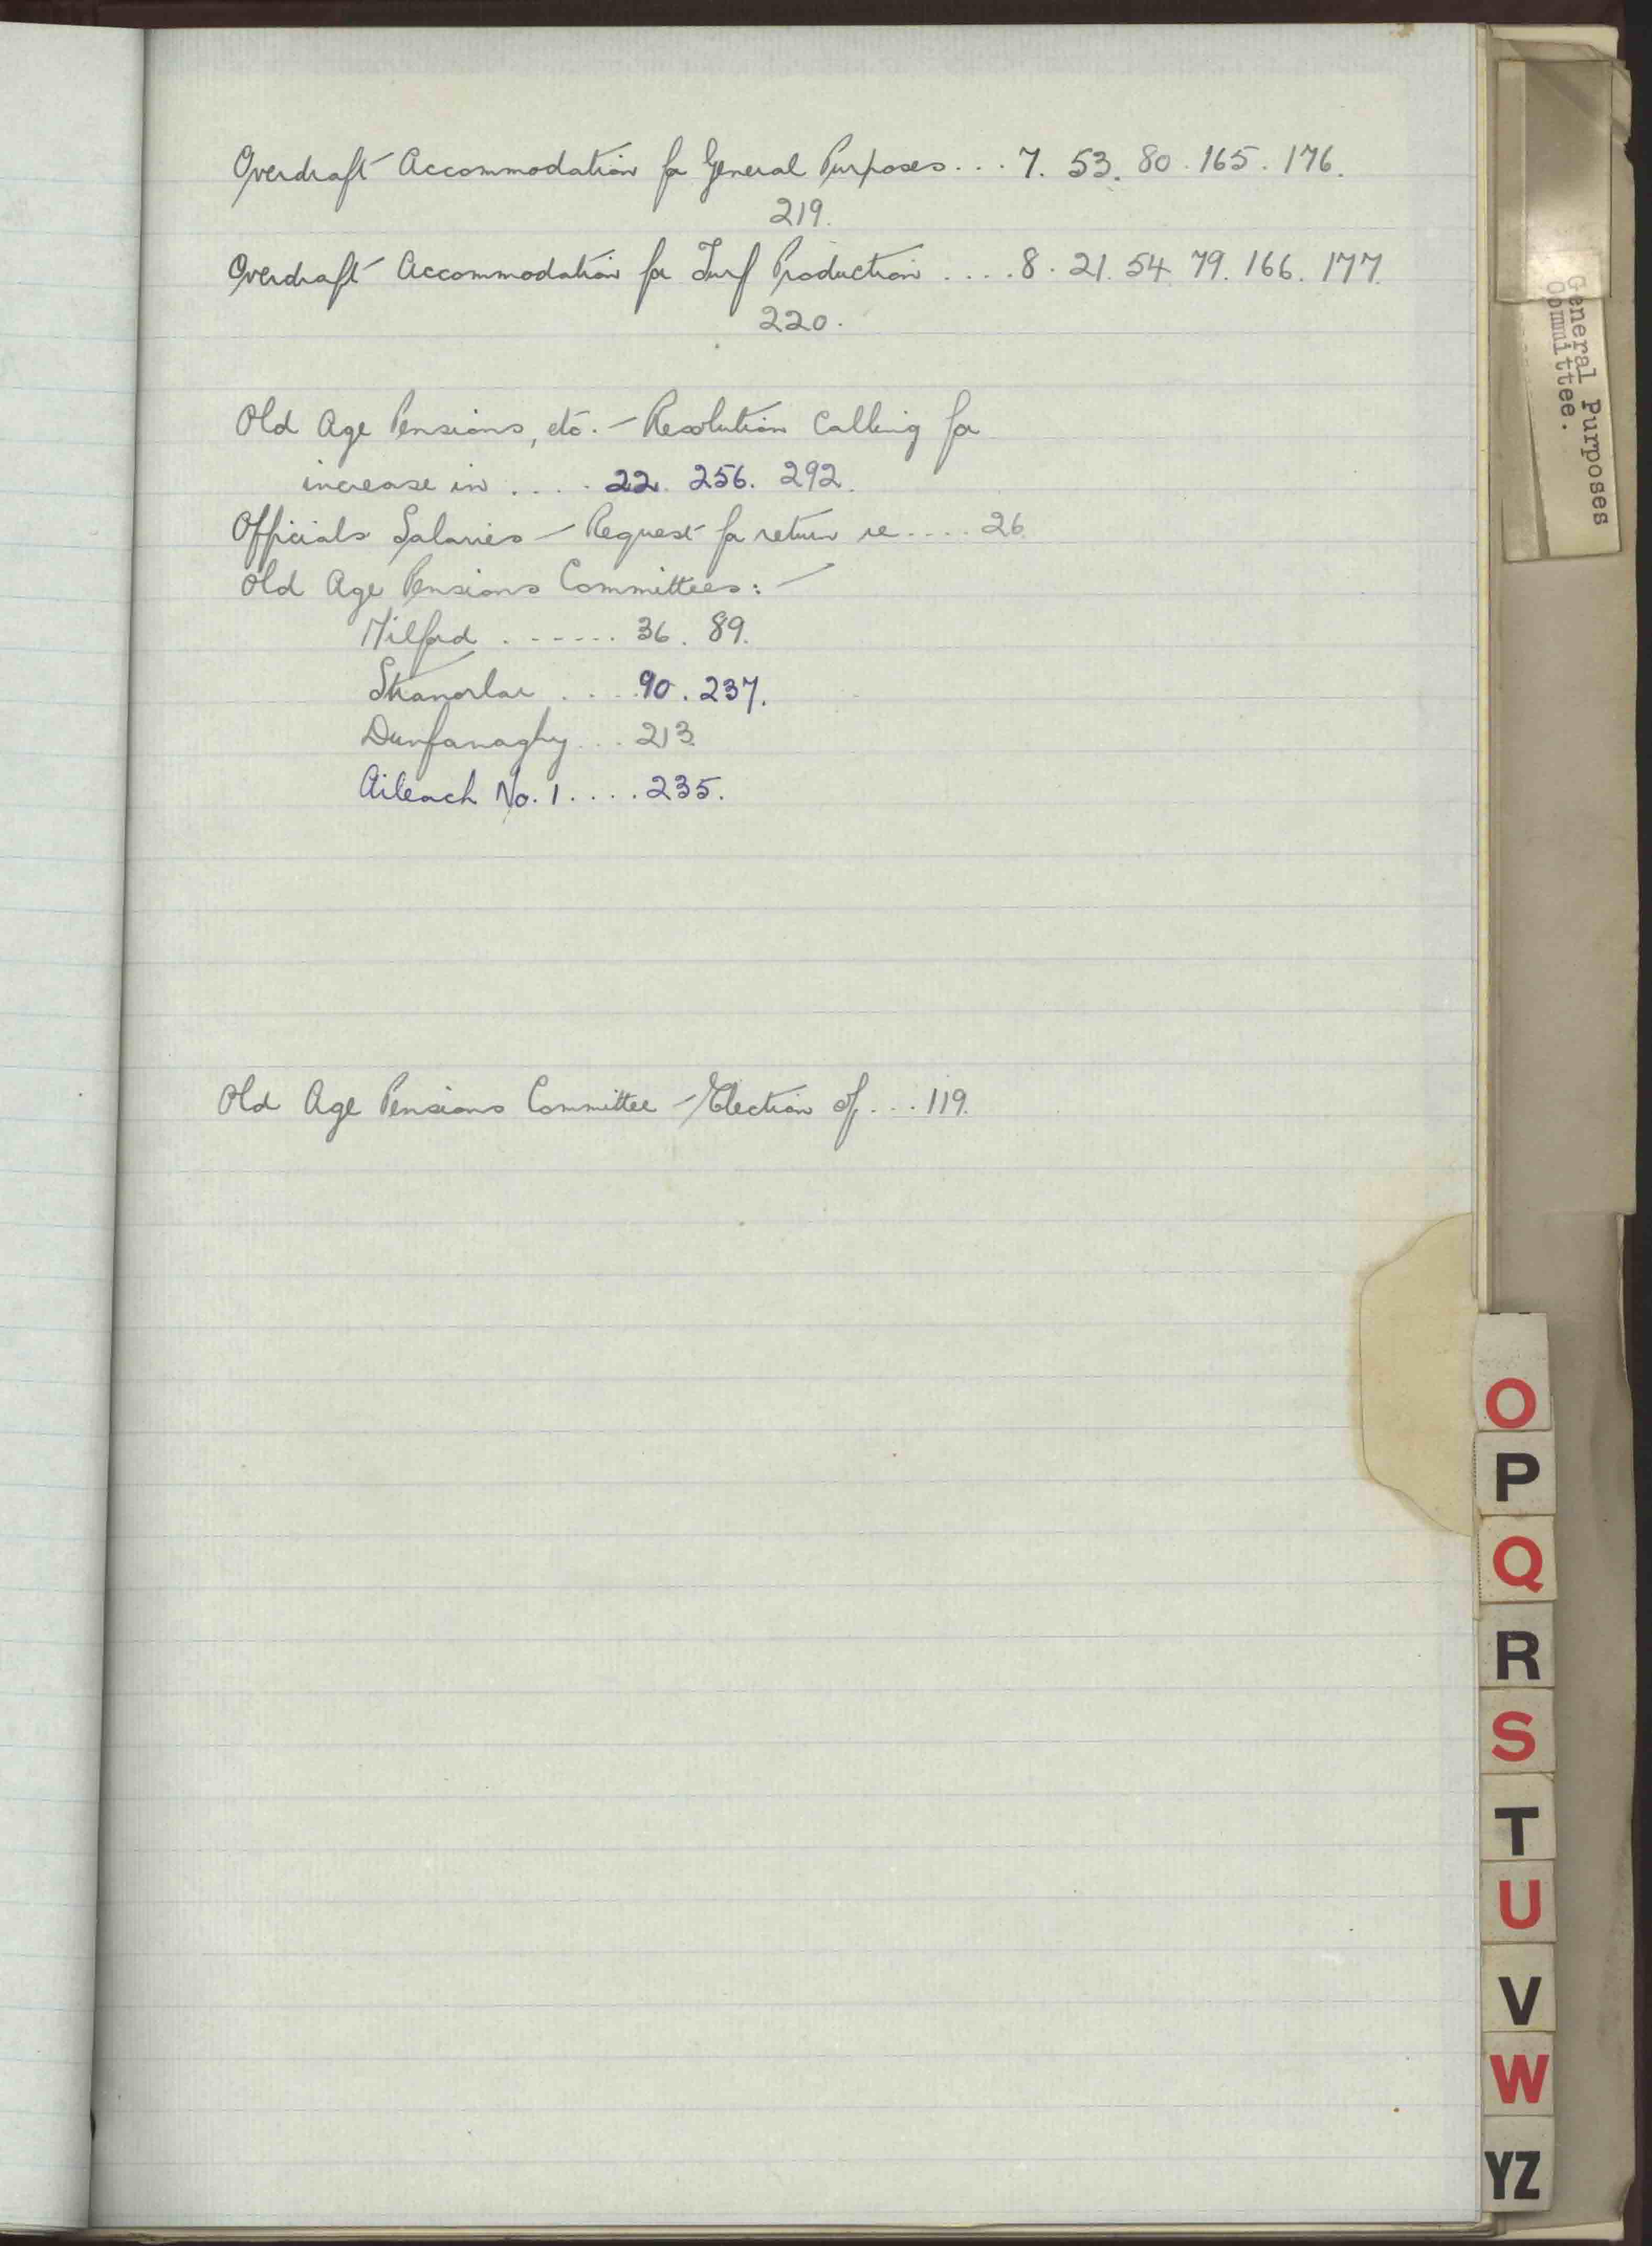 Overdraft Accommodation for General Purposes... 7. 53. 80. 165. 176.
219.
Overdraft Accommodation for Turf Production .... 8. 21. 54. 79. 166. 177.
220.
Old Age Pensions, etc. - Resolution calling for
increase in ..... 22. 256. 292.
Officials Salaries - Request for return re.... 26.
Old Age Pensions Committees: -
Milford ....... 36. 89.
Stranorlar .... 90. 237.
Dunfanaghy ... 213.
Aileach No. 1 .... 235.
Old Age Pensions Committee - Election of ... 119.
General Purposes
Committee.
O
P
Q
R
S
T
U
V
W
YZ